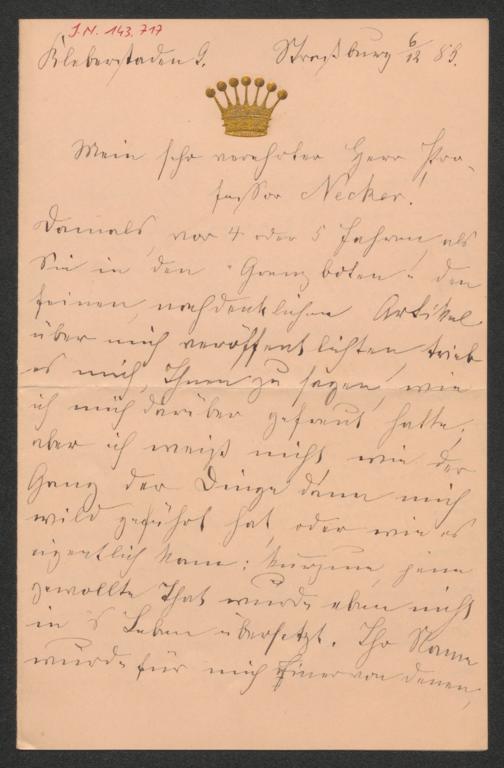 J.N. 143.717
Kleberstaden 9. Straßburg 6/12 85.
Mein sehr verehrter Herr Pro-
fessor Necker!
Damals, vor 4 oder 5 Jahren, als
Sie in den "Grenzboten" den
feinen, nachdenklichen Artikel
über mich veröffentlichten trieb
es mich, Ihnen zu sagen, wie
ich mich darüber gefreut hatte,
aber ich weiß nicht, wie der
Gang der Dinge dann mich
wild geführt hat, oder wie es
eigentlich kam: kurzum, jene
gewollte That wurde eben nicht
in's Leben übersetzt. Ihr Name
wurde für mich Einer von denen,